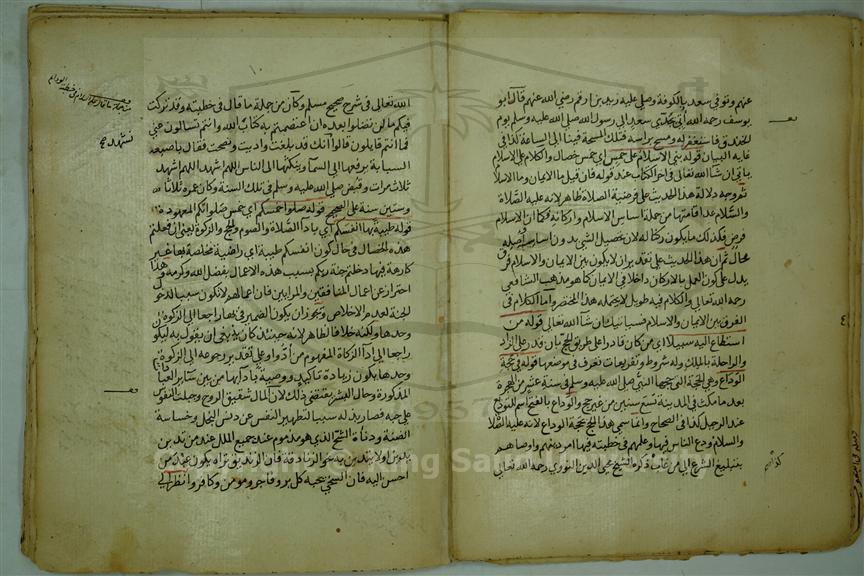 عنهم وتوفي سعد بالكوفة وصلي عليه زيد بن ارقم رضي الله عنهم قال ابو
يوسف رحمه الله أتي بجدي سعد الى رسول الله صلى الله عليه وسلم يوم
الخندق فاستغفر له ومسح براسه فتلك المسحة فينا الى الساعة كذا في
غاية البيان قوله بنى الاسلام على خمس اي خمس خصال والكلام على الاسلام
ياتي ان شاء الله تعالى في اخر الكتاب عند قوله فان قيل ما الايمان وما الاسلام
ثم وجه دلالة هذا الحديث على فرضية الصلاة ظاهر لانه عليه الصلاة
والسلام عد اقامتها من جملة اساس الاسلام واركانه فكما ان الاسلام
فرض فكذلك ما يكون ركنا له لان تحصيل الشيء بدون اساسه واصله
محال ثم ان هذا الحديث على تقدير ان لا يكون بين الايمان والاسلام فرق
يدل على كون العمل بالاركان داخلا في الايمان كما هو مذهب الشافعي
رحمه الله تعالى والكلام فيه طويل لا يحتمله هذا المختصر واما الكلام في
الفرق بين الايمان والاسلام فسياتيك ان شاء الله تعالى قوله من
استطاع اليه سبيلا اى من كان قادرا على طريق الحج بان قدر على الزاد
والراحلة بالملك وله شروط وتفريعات تعرف في موضعها قوله في حجة
الوداع وهي الحجة التي حجها النبي صلى الله عليه وسلم في سنة عشر من الهجرة
بعد ما مكث في المدينة تسع سنين من غير حج والوداع بالفتح اسم للتوديع
عند الرحيل كذا في الصحاح وانما سمي هذا الحج حجة الوداع لانه عليه الصلاة
والسلام ودع الناس فيها وعلمهم في خطبته فيها امر دينهم واوصاهم
بتبليغ الشرع الى من غاب ذكره الشيخ محي الدين النووي رحمه الله تعالى
الله تعالى في شرح صحيح مسلم وكان من جملة ما قال في خطبته وقد تركت
فيكم ما لن تضلوا بعده ان اعتصمتم به كتاب الله وانتم تسالون عني
فما انتم قايلون قالوا قد بلغت واديت ونصحت فقال باصبعه
السبابة يرفعها الى السماء وينكتها الى الناس اللهم اشهد اللهم اشهد
ثلاث مرات وقبض صلى الله عليه وسلم في تلك السنة وكان عمره ثلاثا
وستين سنة على الصحيح قوله صلوا خمسكم اي خمس صلواتكم المعهودة
قوله طيبة بها انفسكم اي باداء الصلاة والصوم والحج والزكوة يعني ان فعلتم
هذه الخصال في حال كون انفسكم طيبة اي راضية مخلصة بها غير
كارهة فيها دخلتم جنة ربكم بسبب هذه الاعمال بفضل الله وكرمه وهذا
احتراز عن اعمال المنافقين والمرايين فان اعمالهم لا تكون سببا لدخول
الجنة لعدم الاخلاص ويجوز ان يكون الضمير في بها راجعا الى الزكوة
وحدها ولكنه خلاف الظاهر لانه حينئذ كان ينبغي ان يقول به ليكون
راجعا الى اداء الزكاة المفهوم من أدوا وعلى تقدير رجوعه الى الزكوة
وحدها يكون زيادة تاكيد ووصية بادائها من بين ساير العبادات
المذكورة وحال البشر يقتضي ذلك لان المال شقيق الروح وجبلت النفوس
على حبه فصار بذله سببا لتطهير النفس عن دنس البخل وخساسة
الضنة ودناءة الشح الذي هو مذموم عند جميع الملل عند من تدين
بدين اولا يتدين به سوى الزنادقة فان الزنديق تراه يكون عند من
احسن اليه فان السخي يحبه كل بر وفاجر ومومن وكافر وانظر الى